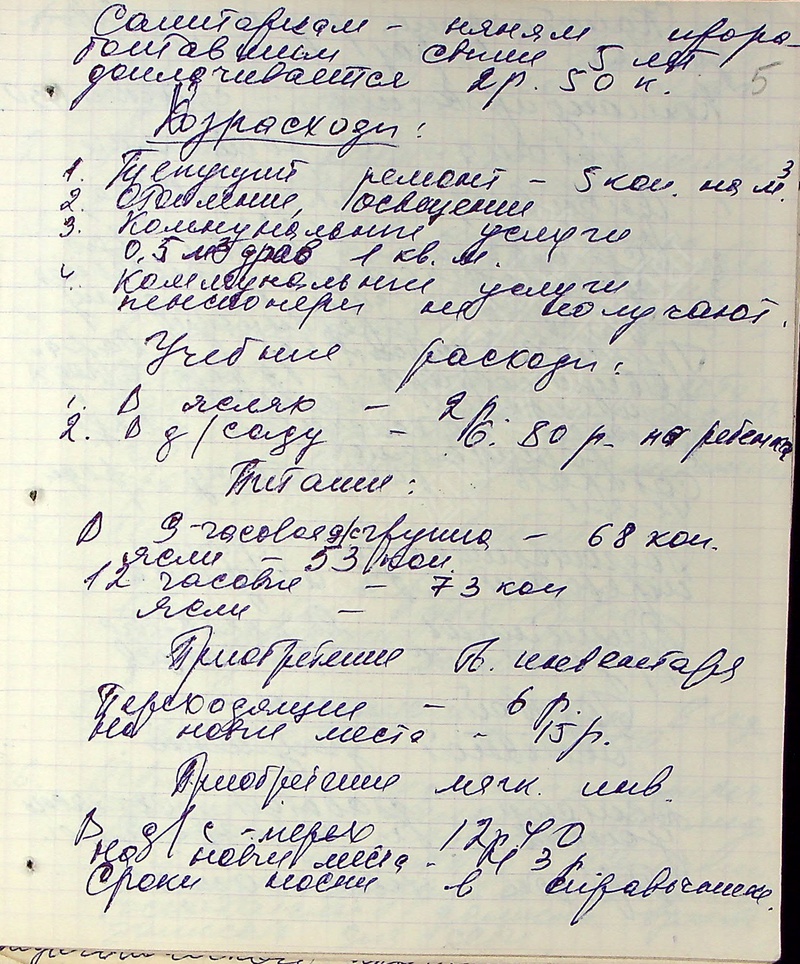 Санитаркам - няням прора-
ботавшим свыше 5 лет
доплачивается 2р. 50 к.
5
Хозрасходы:
1. Текущий ремонт - 5 коп. на м³.
2. Отопление, освещение
3. Коммунальные услуги
0,5 м³ дров 1 кв. м.
4. Коммунальные услуги
пенсионеры не получают.
Учебные расходы:
1. В яслях - 2 р.
2. В д/саду - 6. 80 р. на ребенка
Питание:
В 9-часовая группа - 68 коп.
ясли - 53 коп.
12 часовые - 73 коп
ясли -
Приобретение тв. инвентаря
Переходящие - 6 р.
На новые места - 15 р.
Приобретение мягк. инв.
В д/с - перех 12р40
на новые места - 3 р
Сроки носки в справочнике.